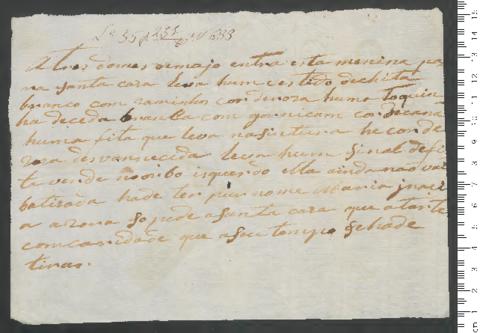 A tres do mes de majo entra esta menina pa
ra santa caza leva hum vestido de chita
branco com raminhos cor de roza huma toquin
ha de ceda branca com goarnicam cor de caza
huma fita que leva na sintura he cor de
roza desvanecida leva hum sinal de fi
ta verde no coibo isquerdo ella ainda não vai
batizada hade ter por nome Maria Ignaci
a a roza so pede a santa caza que a trate
com caridade que a seu tempo se hade
tirar.